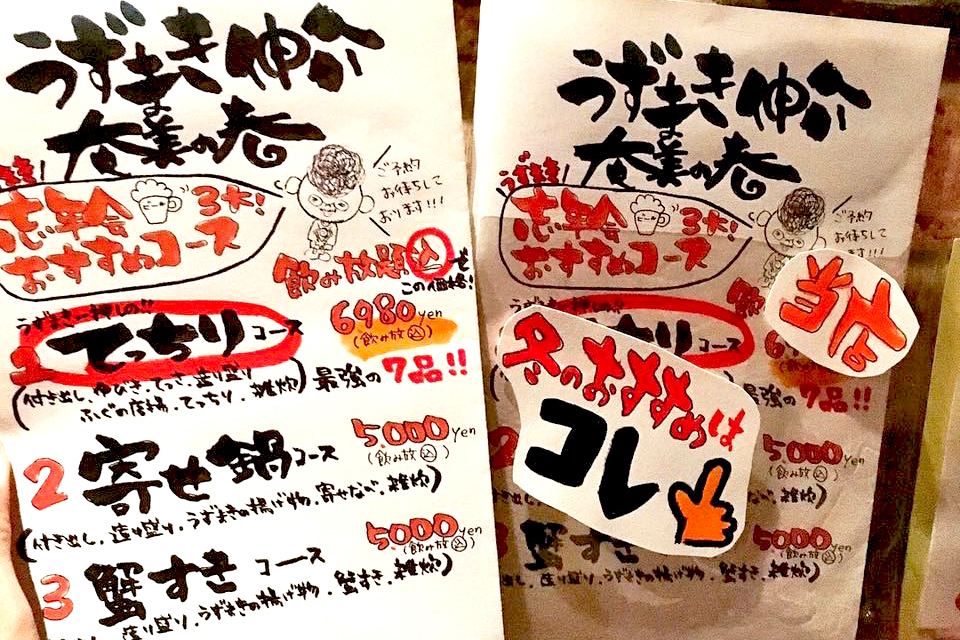 うずまき伸介
奄美の巻
忘年会 3大!
おすすめコース
ご予約
お待ちして
おります!!!
飲み放題込で
この価格!
うずまき一押しの!!
1 てっちりコース
6980yen
(飲み放込)
(付き出し、ゆびき、てっさ、造り盛り
ふぐの唐揚、てっちり、雑炊)
最強の7品!!
2 寄せ鍋コース
5000yen
(飲み放込)
(付き出し、造り盛り、うずまきの揚げ物、寄せなべ、雑炊)
3 蟹すきコース
5000yen
(飲み放込)
造り盛り、うずまきの揚げ物、蟹すき、雑炊)
うずまき伸介
奄美の巻
うずまき
忘年会 3大!
おすすめコース
ご予約
お待ちして
ます!!!
コース
最強の7品!!
冬のおすすめは
コレ
5000yen
(飲み放込)
雑炊)
蟹すき
5000yen
(飲み放込)
造り盛り、うずまきの揚げ物、蟹すき、雑炊)